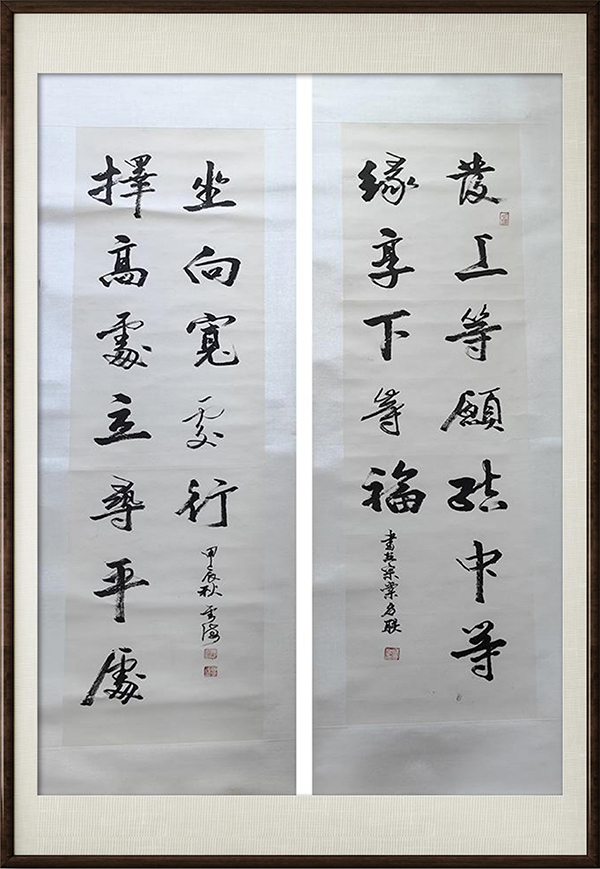 發上等願結中等
緣享下等福
書左宗棠名联
擇高處立尋平處
坐向寬處行
甲辰秋